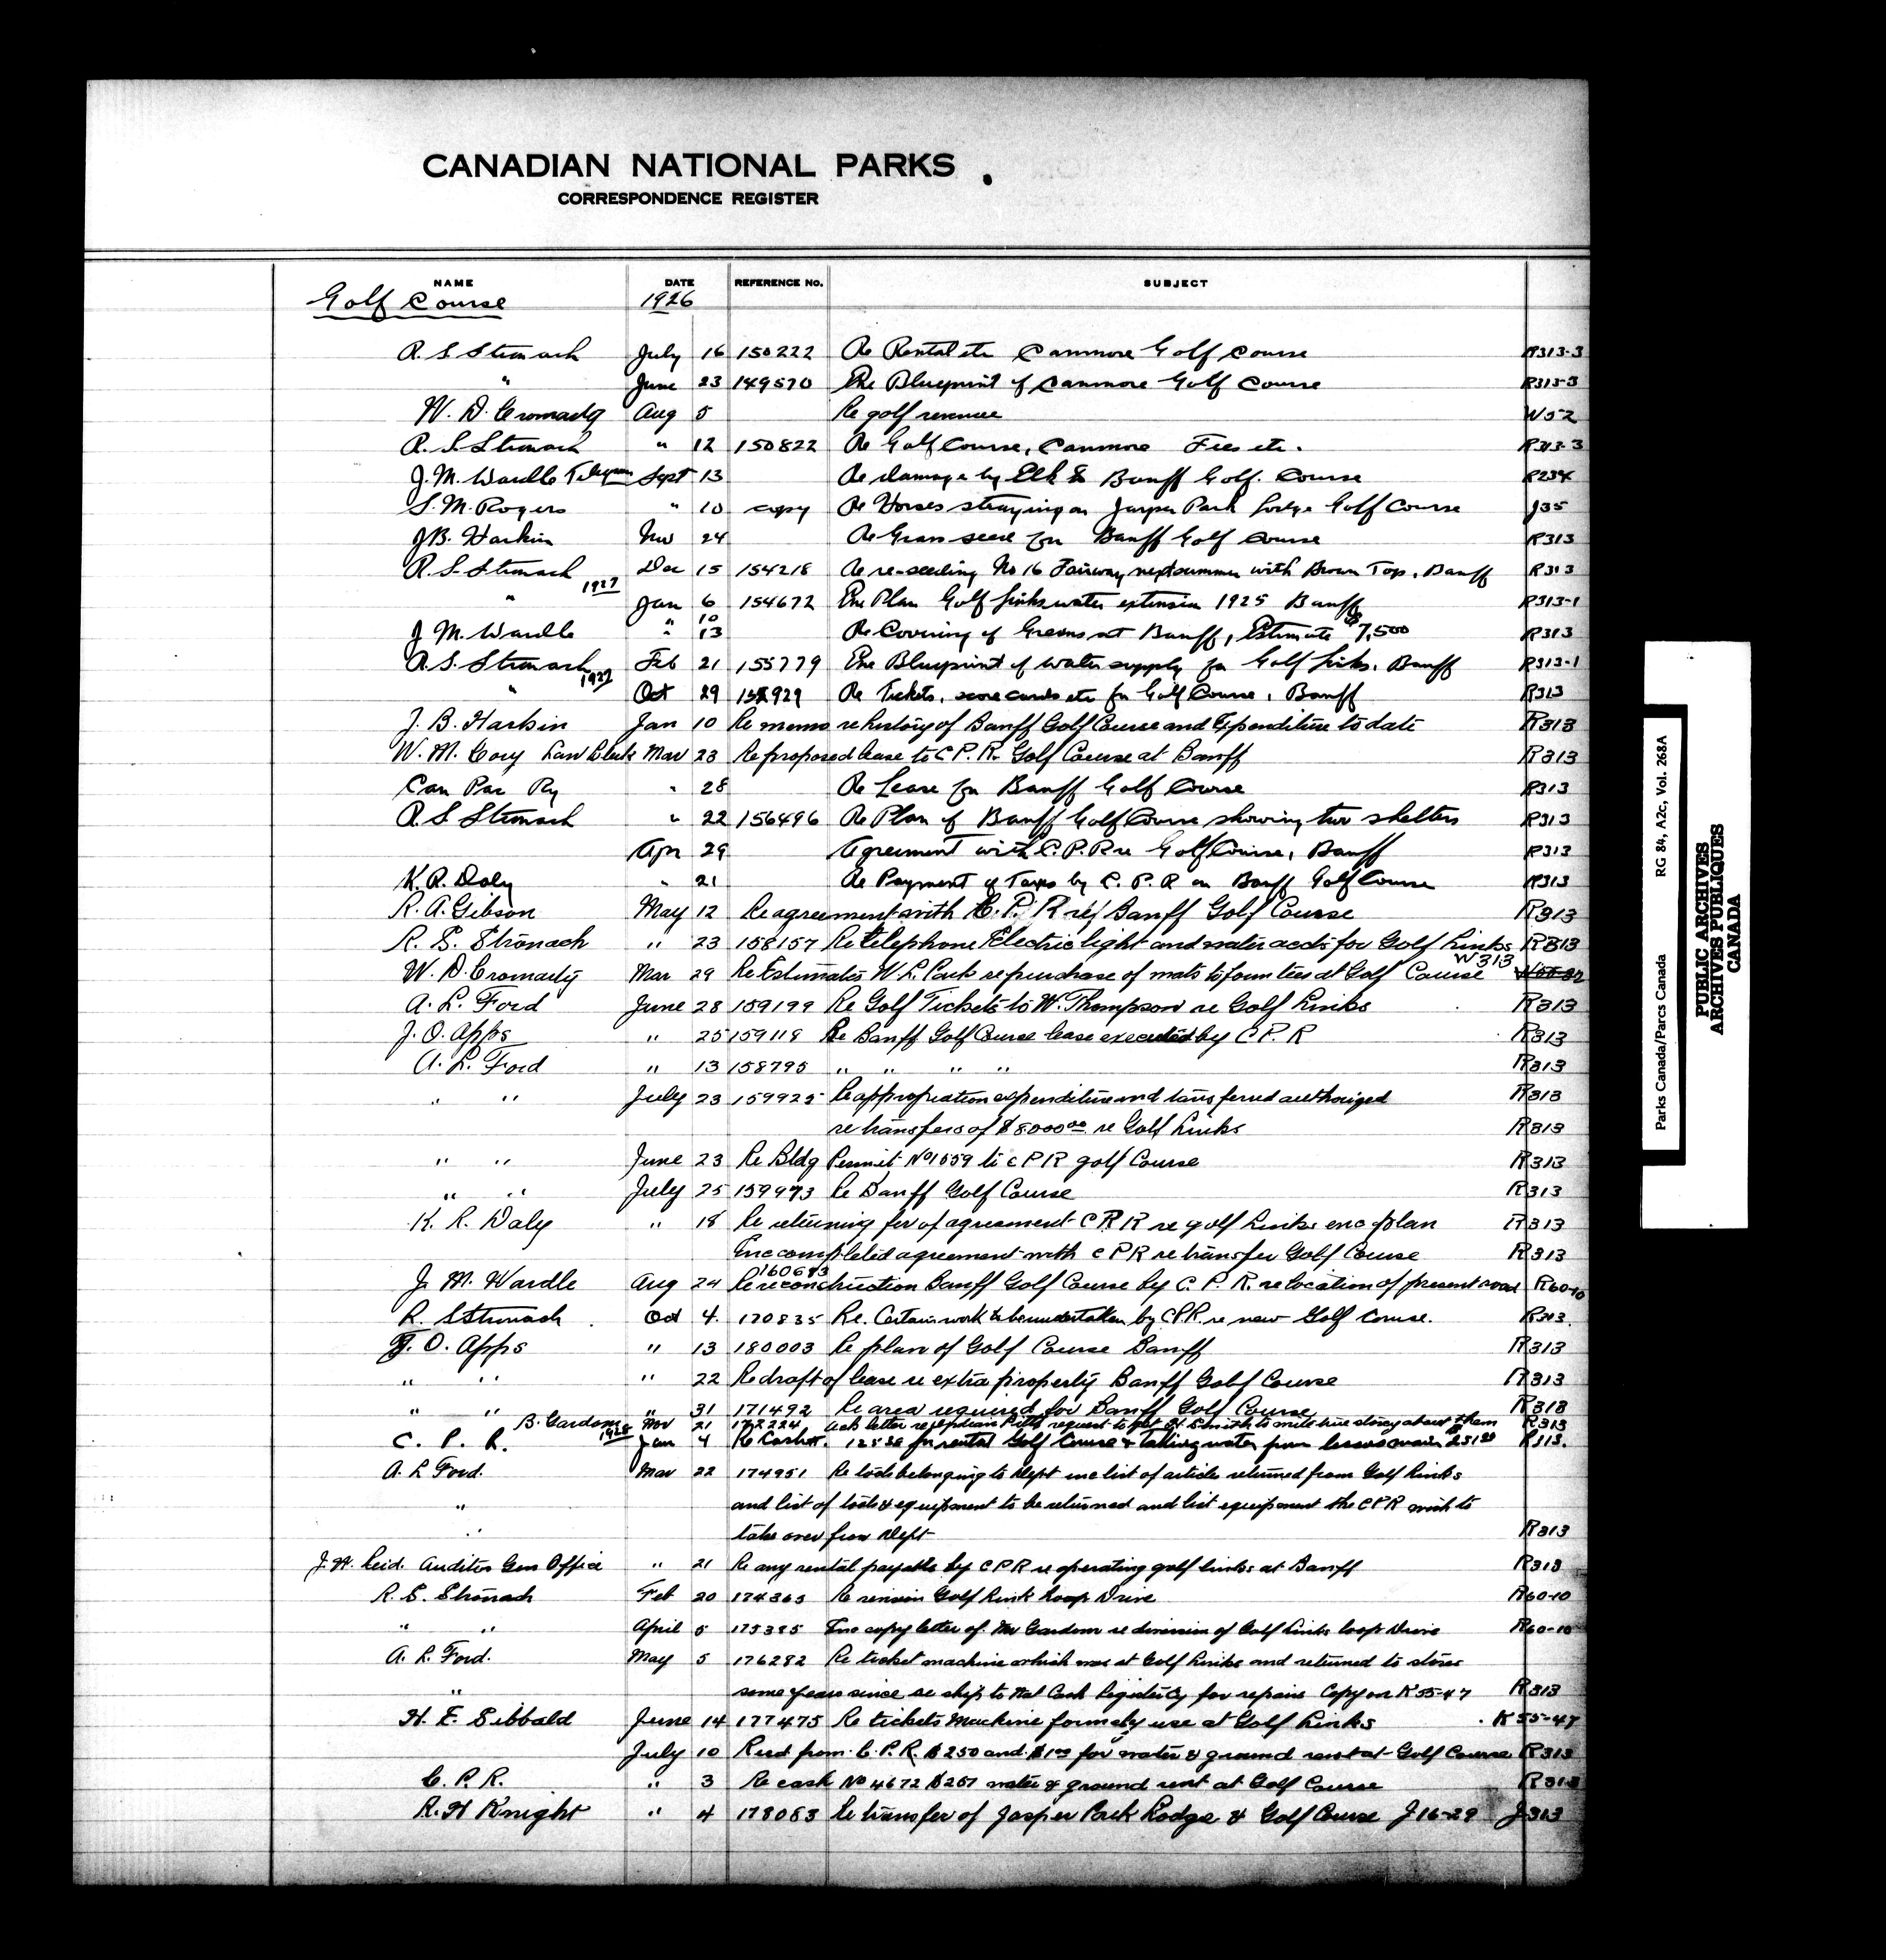 CANADIAN NATIONAL PARKS
CORRESPONDENCE REGISTER
NAME DATE REFERENCE No. SUBJECT
Golf Course 1926
R. S Stronach July 16 150222 Re Rental etc Canmore Golf Course R313-3
" June 23 149570 Enc Blueprint of Canmore Golf Course R313-3
W. D. Cromarty Aug 5 Re golf revenue W52
R. S. Stronach " 12 150822 Re Golf Course, Canmore Fees etc. R313-3
J. M. Wardle Telegram Sept 13 Re damage by Elk to Banff Golf Course R234
S. M. Rogers " 10 copy Re Horses straying on Jasper Park Lodge Golf Course J35
J.B. Harkin Nov 24 Re Grass seed for Banff Golf Course R313
R. S. Stronach Dec 15 154218 Re re-seeding No 16 Fairway next summer with Brown Top, Banff R313
1927
" Jan 6 154672 Enc Plan Golf Links water extension 1925 Banff R313-1
" 10
J M. Wardle " 13 Re Covering of Greens at Banff, Estimate $7,500 R313
R. S. Stronach Feb 21 155779 Enc Blueprint of water supply for Golf Links, Banff R313-1
1927
" Oct 29 929 Re Tickets, score cards etc for Golf Course, Banff R313
J. B. Harkin Jan 10 Re memo re history of Banff Golf Course and Expenditure to date R313
W. M. Cory Law Clerk Mar 23 Re proposed lease to C P. R. Golf Course at Banff R313
Can Pac Ry " 28 Re Lease for Banff Golf Course R313
R. S Stronach " 22 156496 Re Plan of Banff Golf Course showing two shelters R313
Apr 29 Agreement with C. P. R re Golf Course, Banff R313
K. R. Daly " 21 Re Payment of Taxes by C. P. R on Banff Golf Course R313
R. A. Gibson May 12 Re agreement with C. P. R ref Banff Golf Course R313
R. S. Stronach " 23 158157 Re telephone Electric light and water accts for Golf Links R313
W. D. Cromarty Mar 29 Re Estimates W. L. Park re purchase of mats to form tees at Golf Course W313
A. L. Ford June 28 159199 Re Golf Tickets to W. Thompson re Golf Links R313
J. O. Apps " 25 159118 Re Banff Golf Course lease executed by C P. R R313
A. L. Ford " 13 158795 " " " " R313
" " July 23 159925 Re appropriation expenditure and transferred authorized R313
re transfers of $8000.00 re Golf Links R313
" " June 23 Re Bldg Permit No 1059 to C P R golf Course R313
" " July 25 159973 Re Banff Golf Course R313
K. R. Daly " 18 Re returning for of agreement C P R re golf Links enc plan R313
Enc completed agreement with C P R re transfer Golf Course R313
160693
J. M. Wardle Aug 24 Re reconstruction Banff Golf Course by C. P. R. re location of present road R60-10
R. S Stronach Oct 4. 170835 Re. Certain work to be undertaken by CPR. re new Golf Course. R313.
J. O. Apps " 13 180003 Re plan of Golf Course Banff R313
" " " 22 Re draft of lease re extra property Banff Golf Course R313
" " " 31 171492 Re area required for Banff Golf Course R313
B. Gardom Nov 21 172224 Ack letter re request to get to write true story about them R313
1928
C. P. R. Jan 4 Re Cash for rental Golf Course & Taking water from R313.
A. L Ford. Mar 22 174951 Re tools belonging to Dept enc list of articles returned from Golf Links
" and list of tools & equipment to be returned and list equipment the C P R wish to
" take over from Dept R313
J. W. Reid. Auditor Gen Office " 21 Re any rental payable by C P R re operating golf links at Banff R313
R. S. Stronach Feb 20 174363 Re Golf Link Loop Drive R60-10
" " April 5 175395 Enc copy letter of Mr Gardom re diversion of Golf Links loop Drive R60-10
A. L. Ford. May 5 176282 Re ticket machine which was at Golf Links and returned to stores
" some years since re ship to Nat Cash Register Cy for repairs Copy on K55-47 R313
H. E. Sibbald June 14 177475 Re tickets Machine formely use at Golf Links K55-47
July 10 Recd from C. P. R. $250 and $1.00 for water & ground rent at Golf Course R313
C. P. R. " 3 Re cash No 4672 $251 water & ground rent at Golf Course R313
R. H Knight " 4 178083 Re transfer of Jasper Park Lodge & Golf Course J16-29 J313
Parks Canada/Parcs Canada RG 84, A2c, Vol. 268A
PUBLIC ARCHIVES
ARCHIVES PUBLIQUES
CANADA